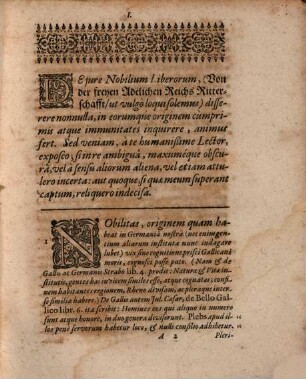 1.
DE jure Nobilium Liberorum, Von
der freyen Adelichen Reichs Ritter-
schafft/ ut vulgo loqui solemus) disse-
rere nonnulla, in eorumque originem cumpri-
mis atque immunitates inquirere, animus
fert. Sed veniam, à te humanissime Lector,
exposco, si in re ambiguâ, maximéque obscu-
râ, vel à sensu aliorum aliena, vel etiam attu-
lero incerta: aut quoque, si quæ meum superant
captum, reliquero indecisa.
NObilitas, originem quam ha-
beat in Germaniâ nostrâ (nec enim gen-
tium aliarum instituta nunc indagare
lubet) vix sine rugientem prisci Gallicanâ
moris, cognosci posse puto. (Nam &c de
Gallis ac Germanis Strabo lib. 4. prodit: Naturâ & Vitæ in-
stitutis, gentes has invicem similes esse, atque cognatas, confi-
nem habitantes regionem, Rheno divisam, ac pleraque inter
se similia habere.) De Gallis autem Jul. Cæsar, de Bello Gal-
lico libr. 6. ita scribit: Homines eos qui aliquo in numero
sunt atque honore, in duo genera divisos esse. Plebs apud il-
los penè servorum habetur loco, & nulli consilio adhibetur.
A 2 Pleri-